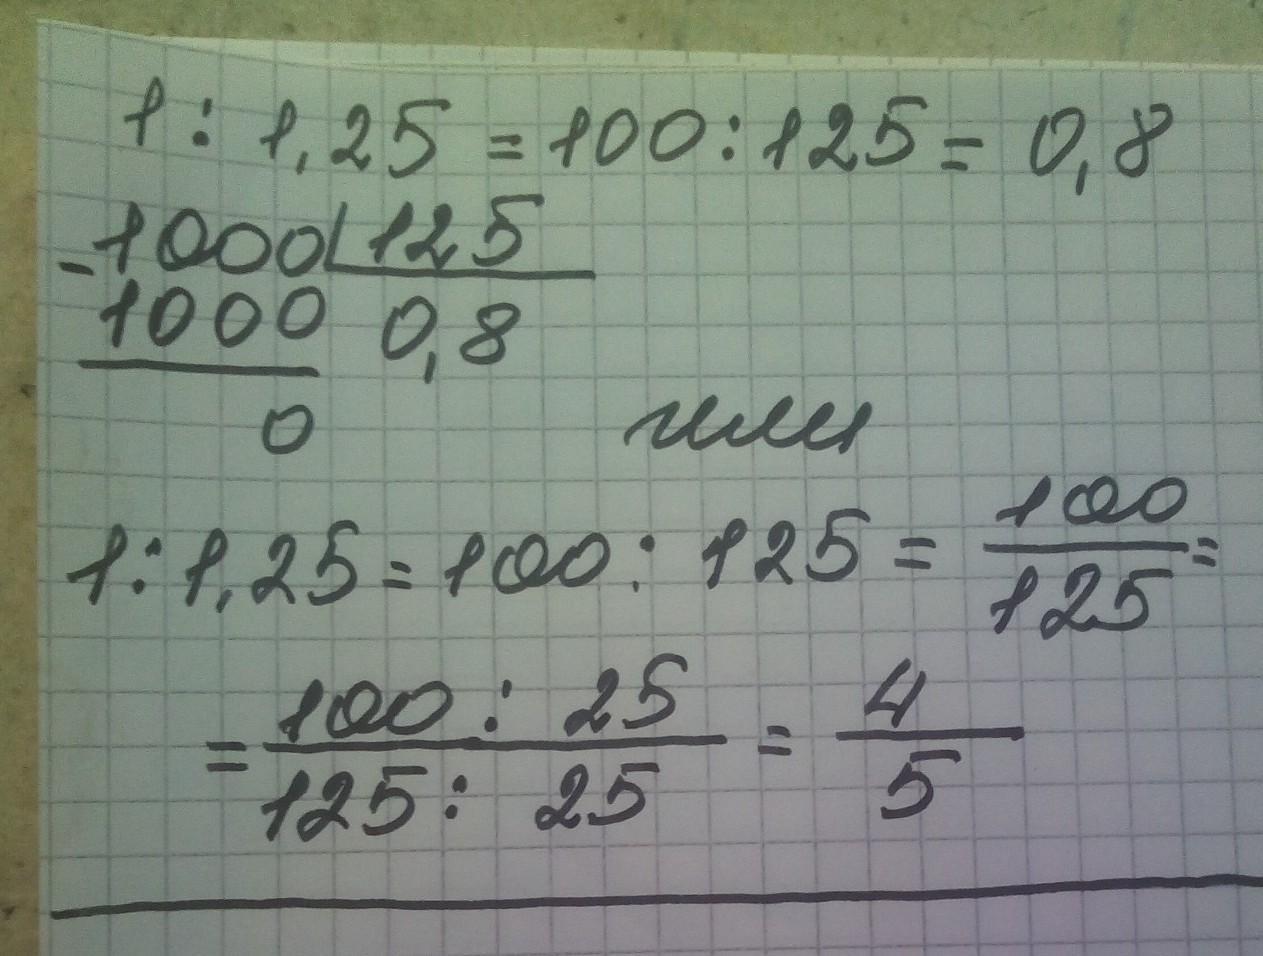 1 : 1,25 = 100 : 125 = 0,8
- 1000 125
1000 0,8
0 или
1 : 1,25 = 100 : 125 = 100/125 =
= 100 : 25 / 125 : 25 = 4/5